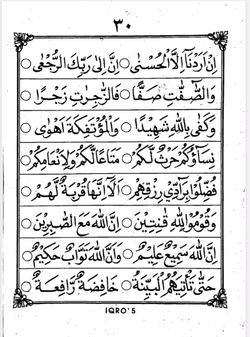 ٣٠
اِنْ اَرَدْنَآ اِلاَّ الْحُسْنٰى ○ اِنَّ اِلٰى رَبِّكَ الرُّجْعٰى ○
وَالصّٰٓفّٰتِ صَفًّا ○ فَالزّٰجِرَاتِ زَجْرًا ○
وَكَفٰى بِاللّٰهِ شَهِيْدًا ○ وَالْمُؤْتَفِكَةَ اَهْوٰى ○
نِسَآؤُكُمْ حَرْثٌ لَّكُمْ ○ مَتَاعًا لَّكُمْ وَلِاَنْعَامِكُمْ ○
فُضِّلُوْا بِرَآدِّيْ رِزْقِهِمْ ○ اَلَآ اِنَّهَا قُرْبَةٌ لَّهُمْ ○
وَقُوْمُوْا لِلّٰهِ قٰنِتِيْنَ ○ اِنَّ اللّٰهَ مَعَ الصّٰبِرِيْنَ ○
اِنَّ اللّٰهَ سَمِيْعٌ عَلِيْمٌ ○ وَاَنَّ اللّٰهَ تَوَّابٌ حَكِيْمٌ ○
حَتّٰى تَأْتِيَهُمُ الْبَيِّنَةُ ○ خَافِضَةٌ رَّافِعَةٌ ○
IQRO'5